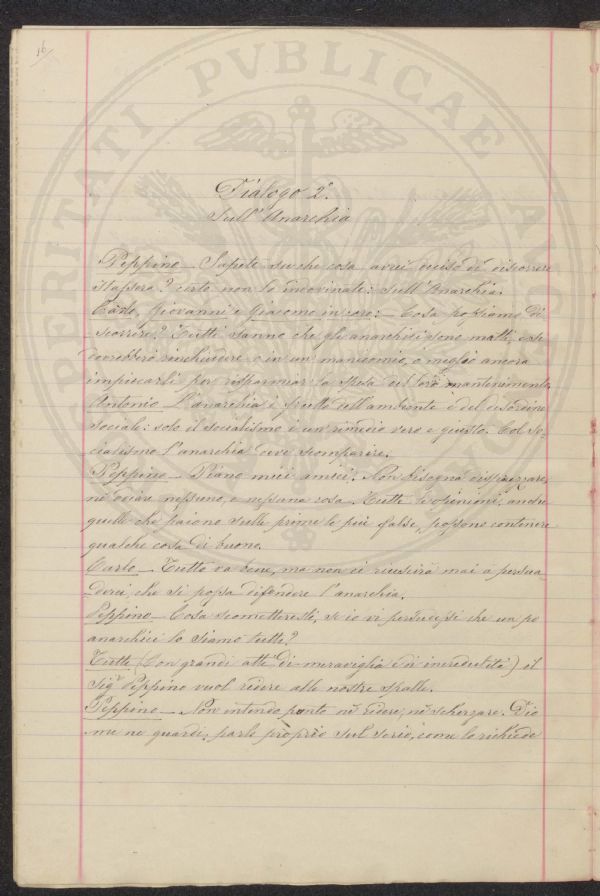 16
PERITATI PVBLICAE
Dialogo 2º.
Sull'Anarchia
Peppino – Sapete su che cosa avrei deciso di discorrere
stassera? certo non lo indovinate: sull'Anarchia.
Carlo, Giovanni e Giacomo in coro: – Cosa possiamo di
scorrere? Tutti sanno che gli anarchici sono matti, e si
dovrebbero rinchiudere o in un manicomio, o meglio ancora
impiccarli per risparmiar la spesa del loro mantenimento.
Antonio – L'anarchia è frutto dell'ambiente e del disordine
sociale: solo il socialismo è un rimedio vero e giusto. Col so-
cialismo l'anarchia deve scomparire.
Peppino – Piano miei amici. Non bisogna disprezzare,
nè odiare nessuno, e nessuna cosa. Tutte le opinioni, anche
quelle che paiono sulle prime le più false, possono contenere
qualche cosa di buono.
Carlo – Tutto va bene, ma non ci riuscirà mai a persua-
derci, che si possa difendere l'anarchia.
Peppino – Cosa scometteresti, se io vi persuadessi che un po
anarchici lo siamo tutti?
Tutti (Con grandi atti di meraviglia e di incredulità) il
Sigr Peppino vuol ridere alle nostre spalle.
Peppino – Non intendo punto nè ridere, nè scherzare. Dio
me ne guardi; parlo proprio sul serio, come lo richiede